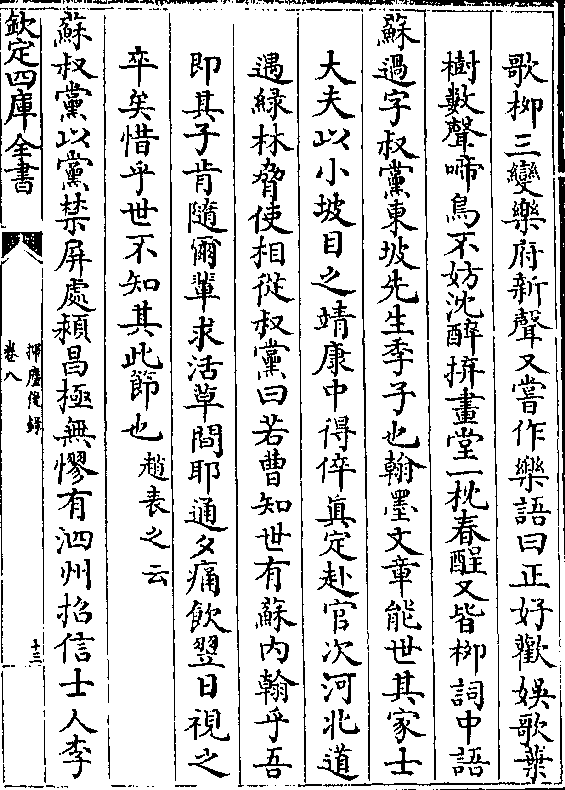 歌柳三變樂府新聲又嘗作樂語曰正好歡娛歌葉
樹數聲啼鳥不妨沈醉拚畫堂一枕春酲又皆柳詞中語
蘇過字叔黨東坡先生季子也翰墨文章能世其家士
大夫以小坡目之靖康中得倅真定赴官次河北道
遇緑林脅使相從叔黨曰若曹知世有蘇内翰乎吾
即其子肯隨爾輩求活草間耶通夕痛飲翌日視之
卒矣惜乎世不知其此節也趙表之云
蘇叔黨以黨禁屏處潁昌極無憀有泗州招信士人李
欽定四庫全書
揮麈後録
卷八
十三